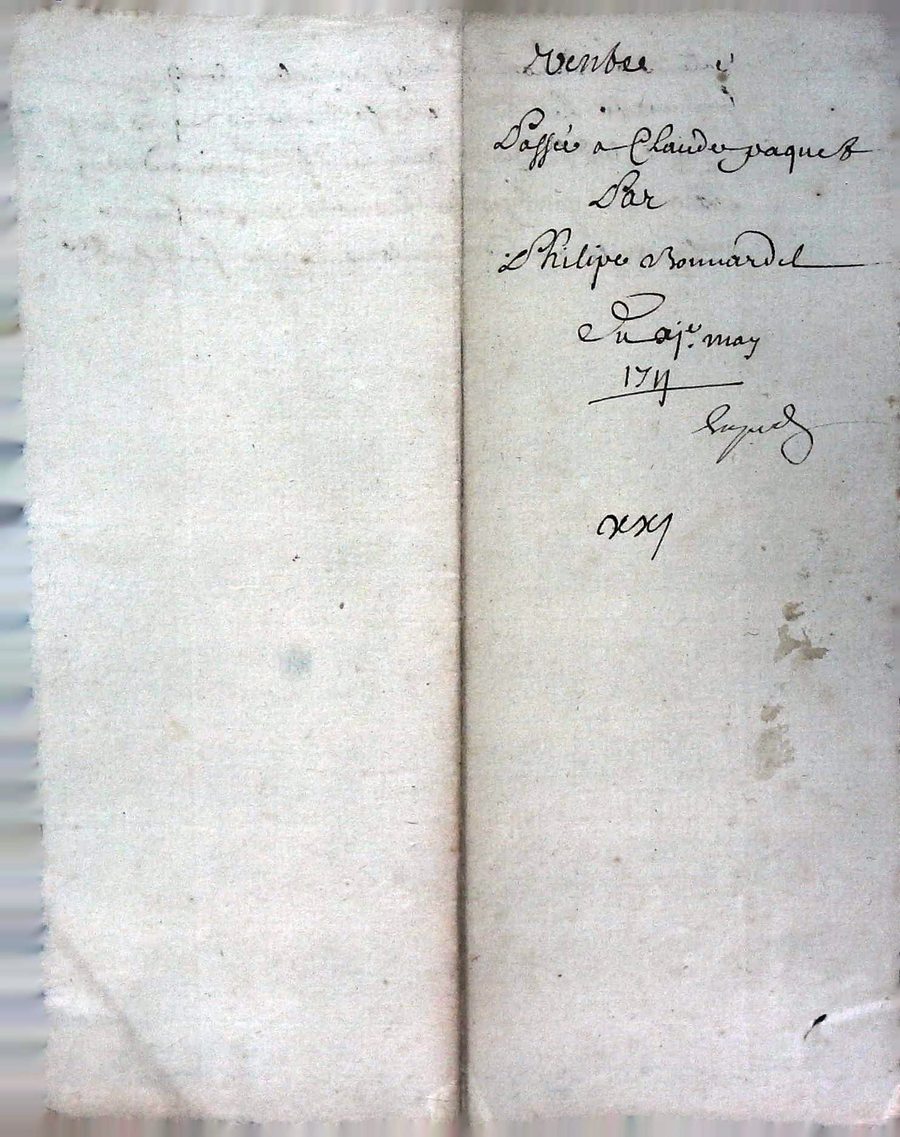 Vente
Passée a Claude paquet
Par
Philipe Bonnardel
Du xje. may
1711
xxj